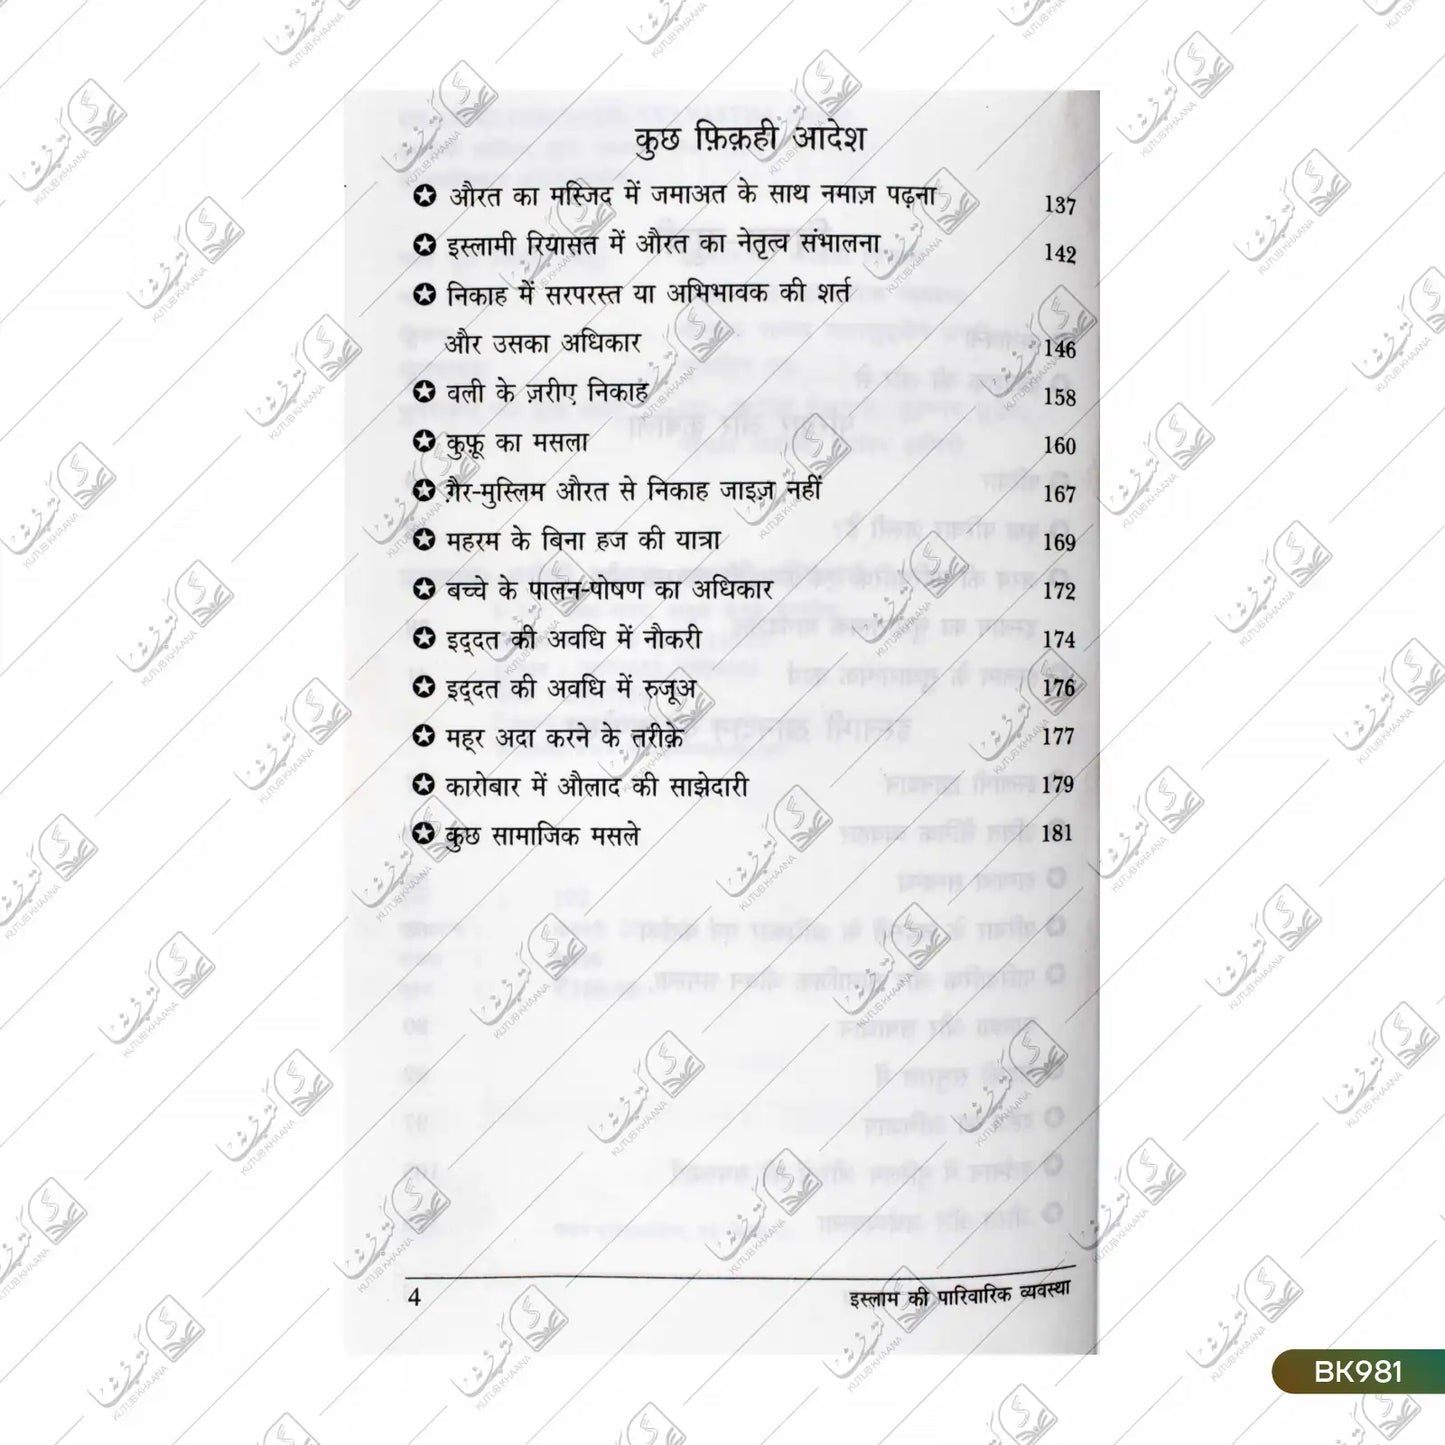 कुछ फ़िक़ही आदेश
औरत का मस्जिद में जमाअत के साथ नमाज़ पढ़ना 137
इस्लामी रियासत में औरत का नेतृत्व संभालना 142
निकाह में सरपरस्त या अभिभावक की शर्त
और उसका अधिकार 146
वली के ज़रीए निकाह 158
कुफ़ू का मसला 160
ग़ैर-मुस्लिम औरत से निकाह जाइज़ नहीं 167
महरम के बिना हज की यात्रा 169
बच्चे के पालन-पोषण का अधिकार 172
इद्दत की अवधि में नौकरी 174
इद्दत की अवधि में रुजूअ 176
मह्र अदा करने के तरीक़े 177
कारोबार में औलाद की साझेदारी 179
कुछ सामाजिक मसले 181
4 इस्लाम की पारिवारिक व्यवस्था
BK981
KUTUB KHAANA